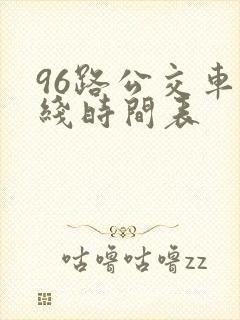 96路公交車
綫時間表
咕嚕咕嚕zz